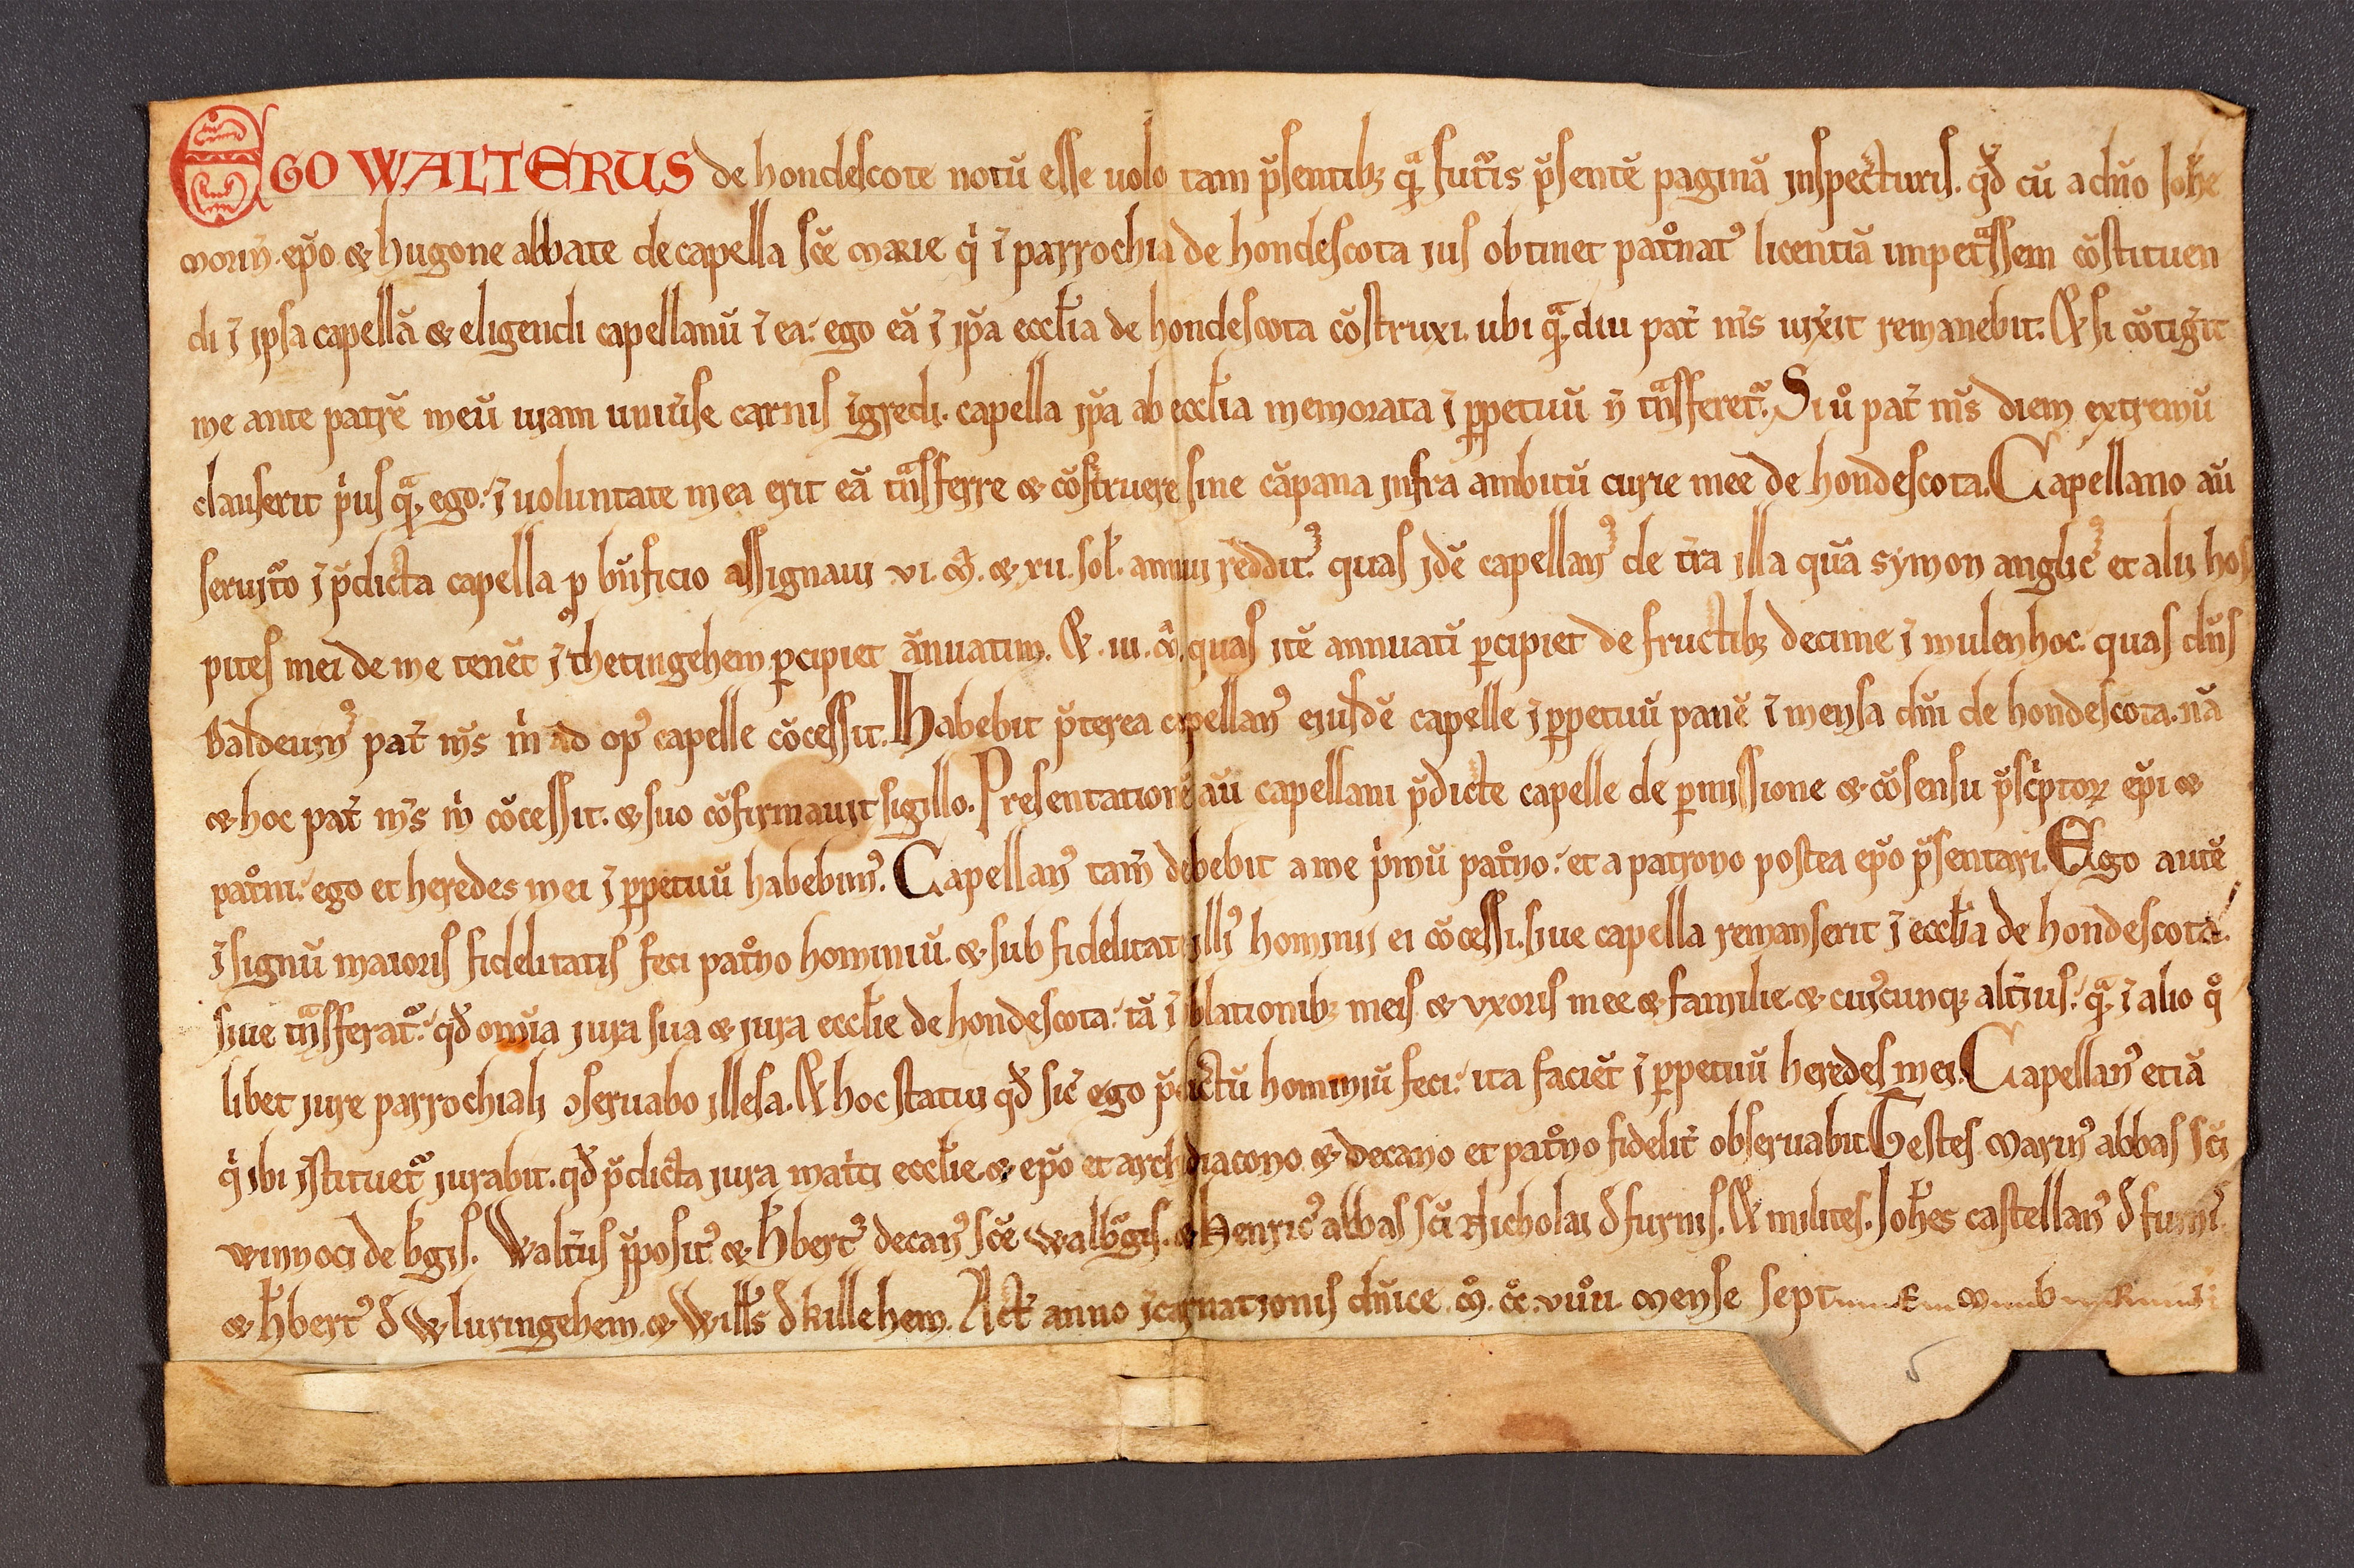 EGO WALTERUS de hondescote notū esse uolo tam p̄sentibꝫ qᷓ futˀis p̄sentē paginā inspecturis. qđ cū a dño Ioħe
morin̄. ep̄o. & hugone abbate de capella sc̄e marie qͥ ī parrochia de hondescota ius obtinet patͦnatꝰ licentiā impetᷓssem cōstituen
di ī ipsa capellā & eligendi capellanū ī ea: ego eā ī ip̄a eccl̄ia de hondescota cōstruxi. ubi qᷓ diu pat̄ m̄s uix̄it remanebit. & si cōtiḡit
me ante patrē meū uiam uniu̾se carnis īgredi. capella ip̄a ab eccl̄ia memorata ī ꝑpetuū n̄ tᷓnsferetᷓ. Si uͦ pat̄ m̄s diem extremū
clauserit pͥus qᷓ ego: ī uoluntate mea erit eā tᷓnsferre & cōstruere sine cāpana infra ambitū curie mee de hondescota. Capellano aū
seruit̾o ī p̄dicta capella ꝓ bn̄ficio assignaui .vi. m̄. & xii. sol̄. annui redditꝰ. quas idē capellanꝰ de t̾ra illa quā symon anglicꝰ et alii hos
pites mei de me tenēt ī thetingehem ꝑcipiet ānuatim. & .iii. m̄. quas itē annuatī ꝑcipiet de fructibꝫ decime ī mulenhoc. quas dn̄s
Baldeuinꝰ pat̄ m̄s m̄ ad opꝰ capelle cōcessit. Habebit p̄terea capellanꝰ eiusdē capelle ī ꝑpetuū panē ī mensa dn̄i de hondescota. nā
& hoc pat̄ m̄s m̄ cōcessit. & suo cōfirmauit sigillo. Presentationē aū capellani p̄dicte capelle de ꝑmissione & cōsensu p̄scͥptoꝝ ep̄i &
patͦni: ego et heredes mei ī ꝑpetuū habebimꝰ. Capellanꝰ tam̄ debebit a me pͥmū patͦno: et a patrono postea ep̄o p̄sentari. Ego autē
ī signū maioris fidelitatis feci patͦno hominiū. & sub fidelitate illiꝰ hominii ei cōcessi. siue capella remanserit ī eccl̄ia de hondescota.
siue tᷓnsferatᷓ: qđ om̄ia iura sua & iura eccl̄ie de hondescota: tā ī oblationibꝫ meis & uxoris mee & familie. & cuiꝰcunqꝫ alt̾ius: qᷓ ī alio qͦ
libet iure parrochiali ꝯseruabo illesa. & hoc statui qđ sic̄ ego p̄dictū hominiū feci: ita faciēt ī ꝑpetuū heredes mei. Capellanꝰ etiā
qͥ ibi īstituetᷓ iurabit. qđ p̄dicta iura mat̾ci eccl̄ie. & ep̄o et archidiacono & decano et patͦno fidelit̄ obseruabit. Testes marinꝰ abbas sc̄i
winnoci de b̾gis. Walt̾us p̄positꝰ & h̾bertꝰ decanꝰ sc̄e walbᷓgis. & henricꝰ abbas sc̄i Nicholai đ furnis. & milites. Ioħes castellanꝰ đ furnˀ.
& h̾bertꝰ đ wluringehem. & Wiłłs đ killehem. Act̄ anno īcarnationis dn̄ice .m̊. c̊c̊. viiͦii. mense sept